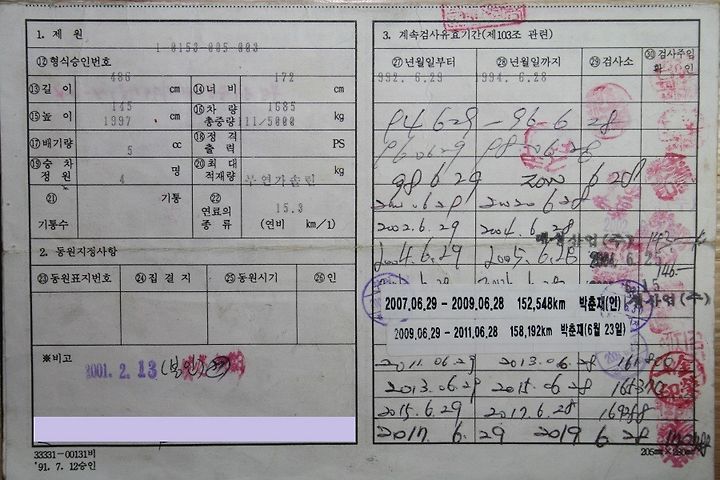 1. 제 원
1 0153 005 003
⑫형식승인번호
⑬길 이 486 cm ⑭너 비 172 cm
⑮높 이 145 cm ⑯차 량 총중량 1685 kg
⑰배기량 1997 cc ⑱정 격 출 력 111/5000 PS
⑲승 차 정 원 5 명 ⑳최 대 적재량 kg
㉑ 기통수 4 기통 ㉒ 연료의 종 류 무연가솔린 15.3 (연비 km/1)
2. 동원지정사항
㉓동원표지번호 ㉔집 결 지 ㉕동원시기 ㉖인
※비고
2001. 2. 13
33331-00131비
'91. 7. 12승인
3. 계속검사유효기간(제103조 관련)
㉗년월일부터 ㉘년월일까지 ㉙검사소 ㉚검사주임 확 인
992. 6.29 1994. 6.28
94.6.29 - 96-6 28
96.06.29 98.06.28
98 6.29 2000 6 28
2000.6.29 2002 6.28
2002.6.29 2004.6.28
2004.6.29 2005.6.28
2007.06.29 - 2009.06.28 152,548km 박춘재(인)
2009.06.29 - 2011.06.28 158,192km 박춘재(6월 23일)
2011.06.29 2013.06.28
2013.06.29 2015.06.28
2015.6.29 2017.6.28
2017. 6. 29 2019 6 28
205㎜×280㎜